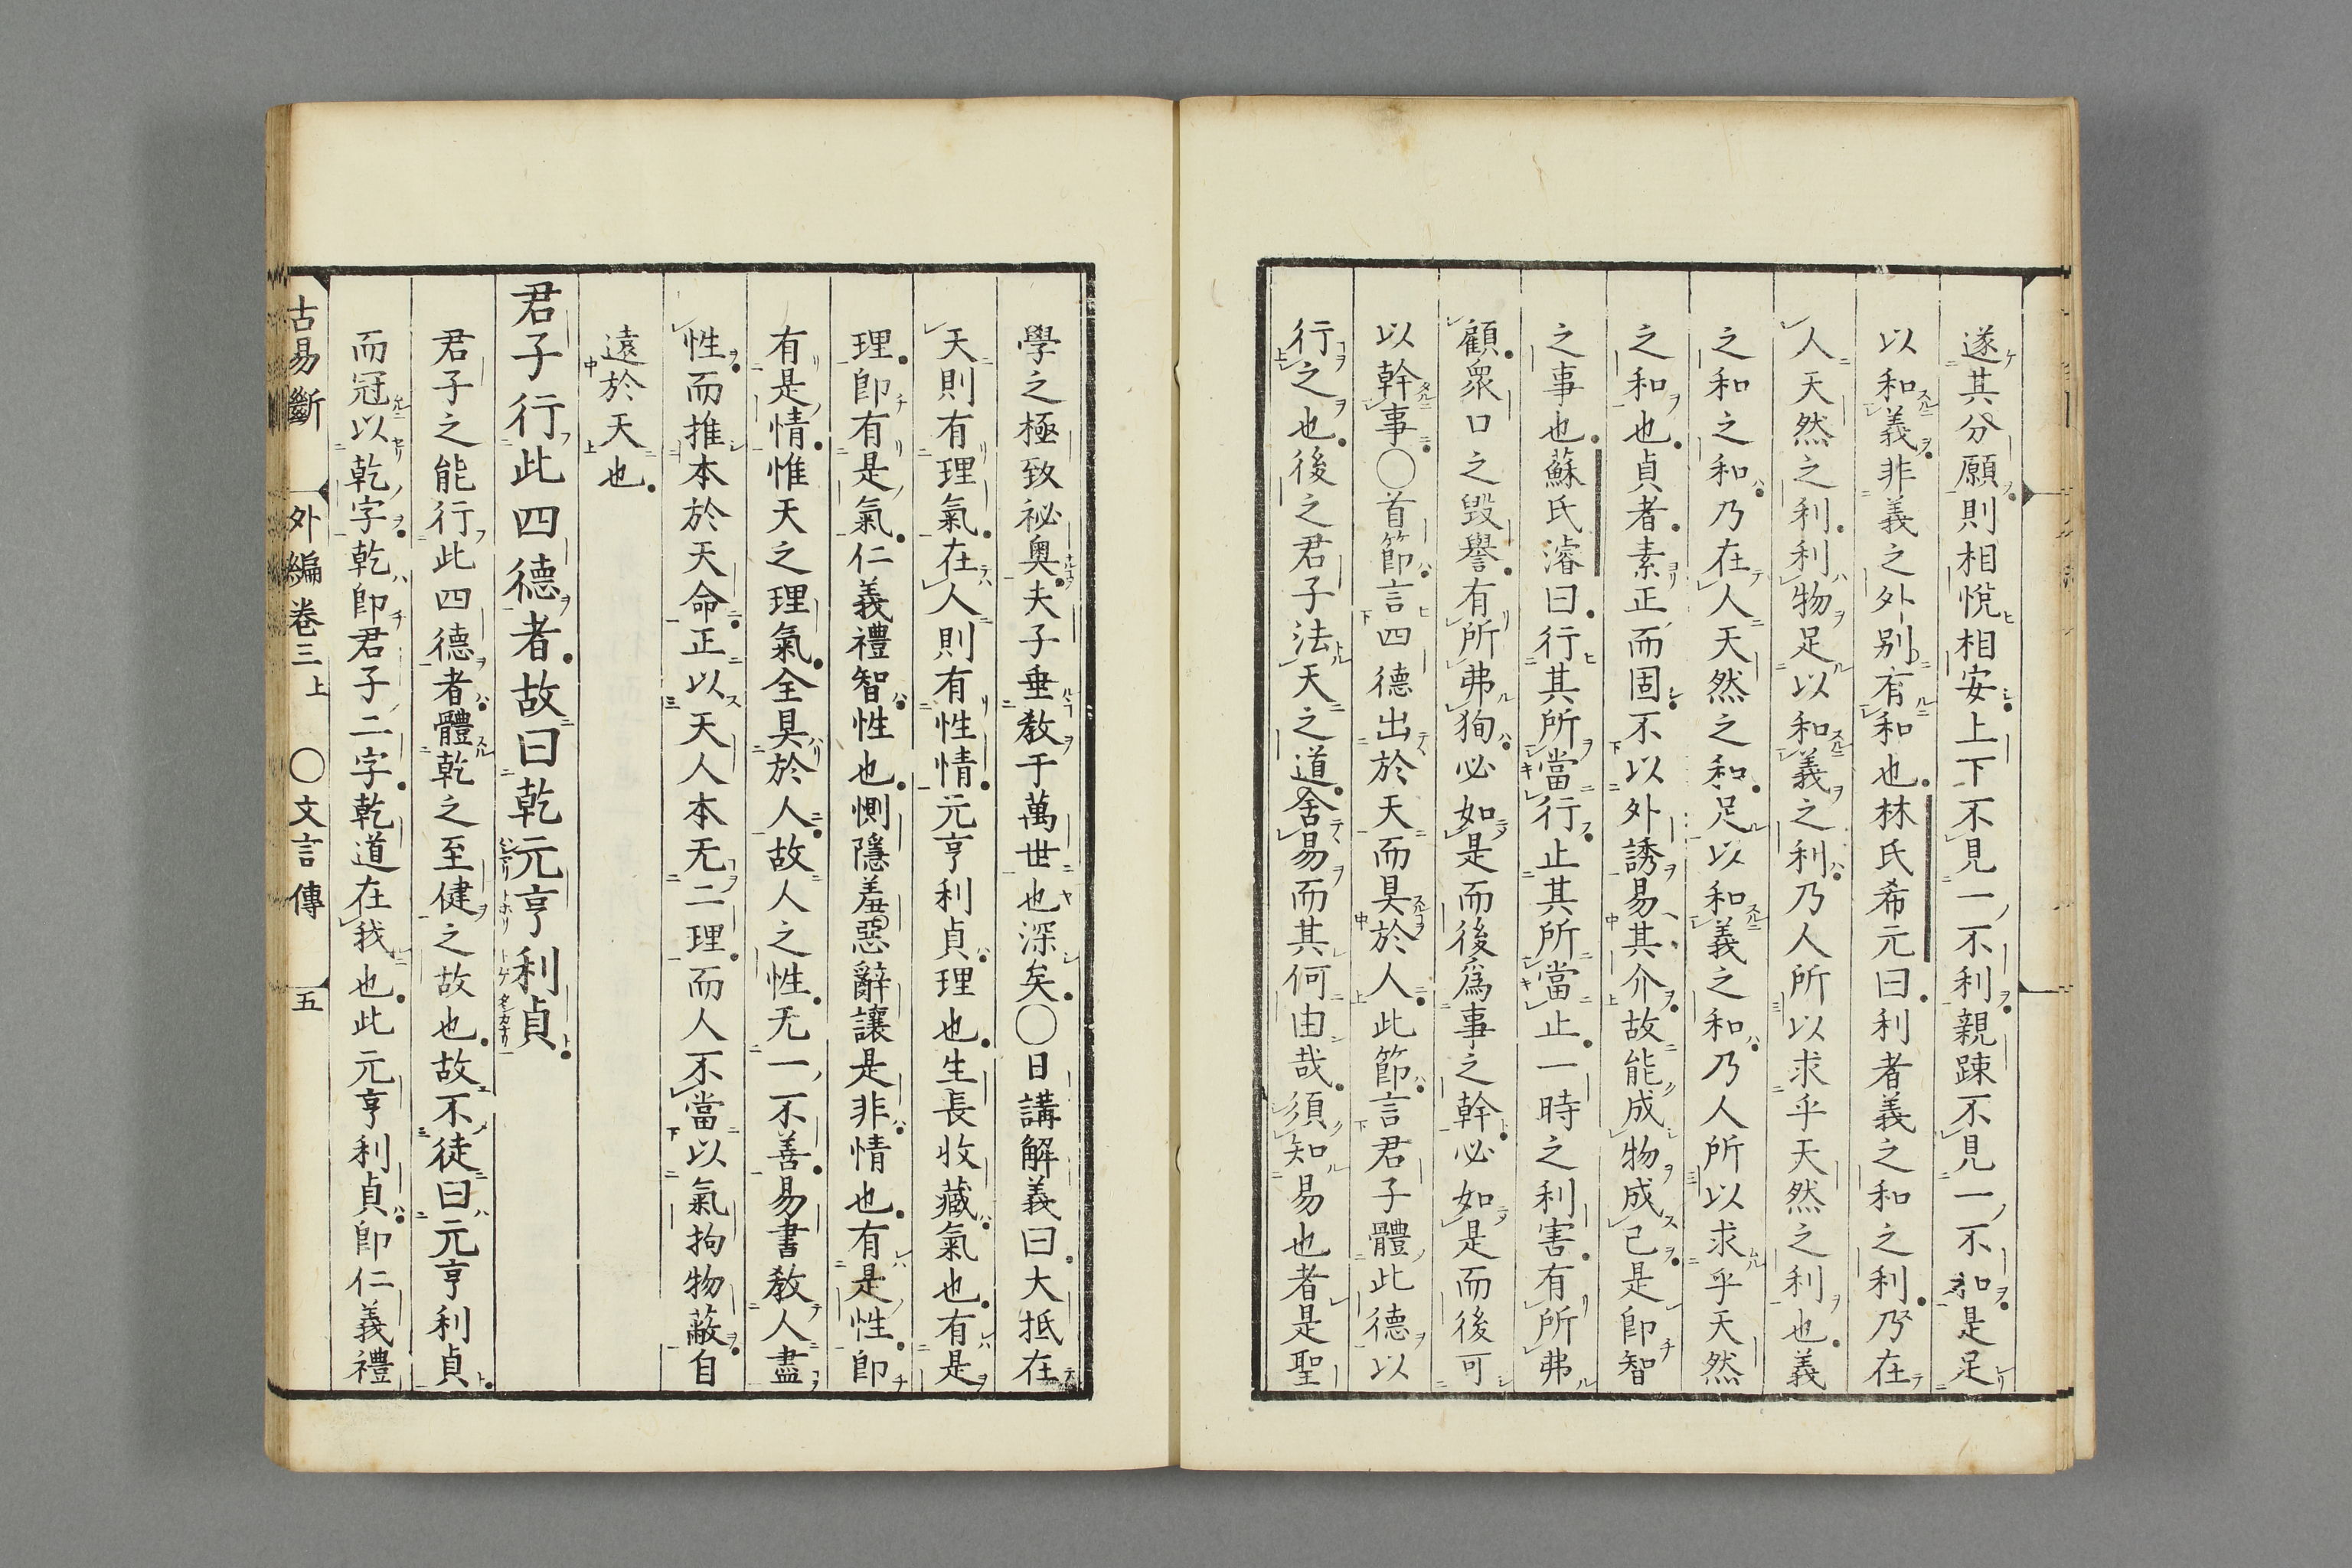 遂其分願則相悅相安上下不見一不利親踈不見一不和是足
以和義非義之外別有和也林氏希元曰利者義之和之利乃在
人天然之利利物足以和義之利乃人所以求乎天然之利也義
之和之和乃在人天然之和足以和義之和乃人所以求乎天然
之和也貞者素正而固不以外誘易其介故能成物成己是卽智
之事也蘇氏濬曰行其所當行止其所當止一時之利害有所弗
顧衆口之毀譽有所弗狥必如是而後爲事之幹必如是而後可
以幹事〇首節言四德出於天而具於人此節言君子體此德以
行之也後之君子法天之道舍易而其何由哉須知易也者是聖
學之極致祕奥夫子垂敎于萬世也深矣〇日講解義曰大抵在
天則有理氣在人則有性情元亨利貞理也生長收藏氣也有是
理卽有是氣仁義禮智性也惻隱羞惡辭讓是非情也有是性卽
有是情惟天之理氣全具於人故人之性无一不善易書敎人盡
性而推本於天命正以天人本无二理而人不當以氣拘物蔽自
遠於天也
君子行此四德者故曰乾元亨利貞
君子之能行此四德者體乾之至健之故也故不徒曰元亨利貞
而冠以乾字乾卽君子二字乾道在我也此元亨利貞卽仁義禮
古易斷 外編卷三上 〇文言傳 五